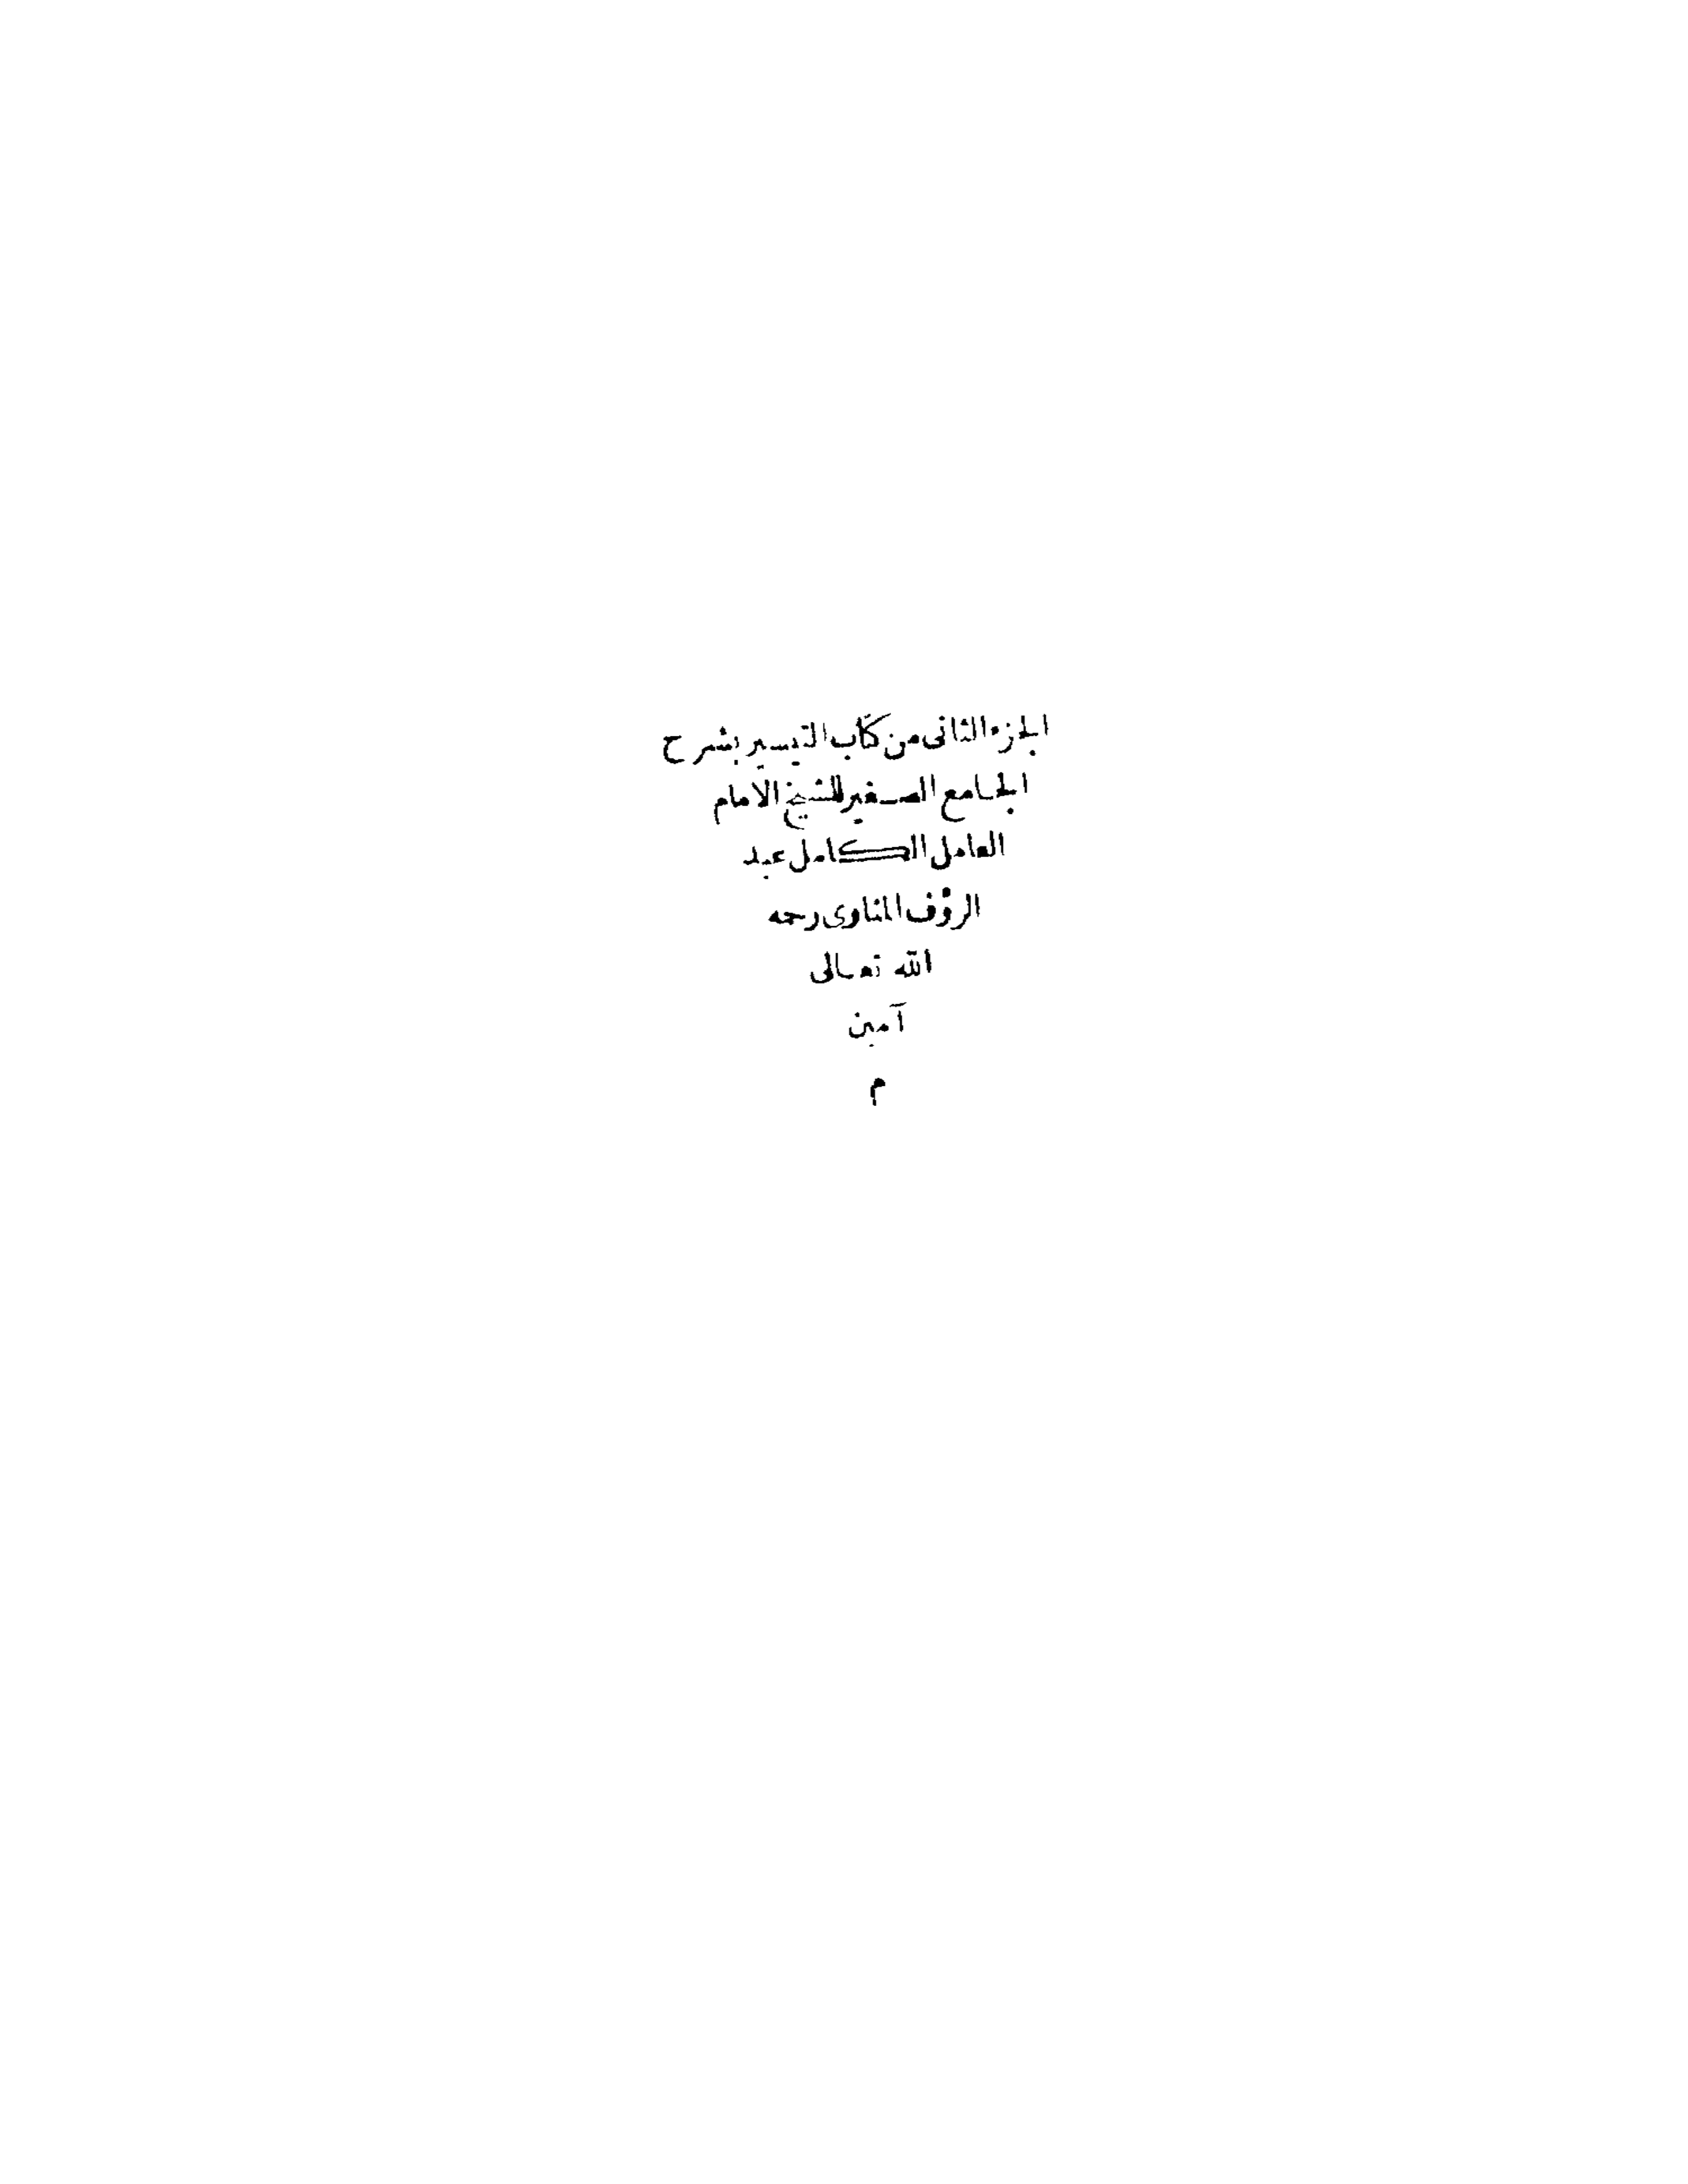 الجزء الثانى من كتاب التيسير بشرح
الجامع الصغير للشيخ الامام
العامل الكامل عبد
الرؤف المناوى رحمه
الله تعالى
آمين
م